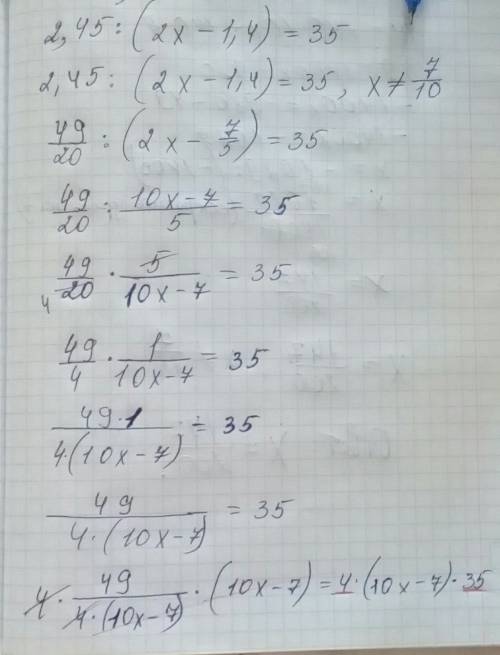 2,45 : (2x − 1,4) = 35
2,45 : (2x − 1,4) = 35, x ≠ 7/10
49/20 : (2x − 7/5) = 35
49/20 : (10x − 7)/5 = 35
4 49/20 · 5/(10x − 7) = 35
49/4 · 1/(10x − 7) = 35
(49 · 1)/(4 · (10x − 7)) = 35
49/(4 · (10x − 7)) = 35
4 · 49/(4 · (10x − 7)) · (10x − 7) = 4 · (10x − 7) · 35